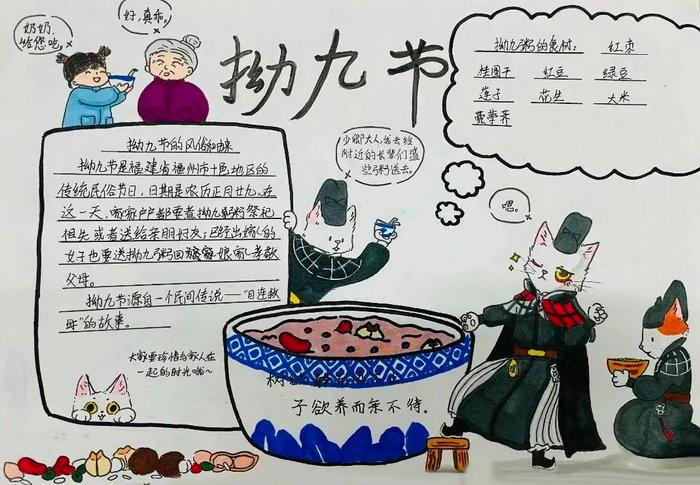 奶奶,
给您吃。
好,真乖。
拗九节
拗九粥的食材: 红枣
桂圆干 红豆 绿豆
莲子 花生 大米
荸荠
少卿大人,我去给
附近的长辈们盛
些粥送去。
嗯。
拗九节的风俗和由来
拗九节是福建省福州市十邑地区的
传统民俗节日,日期是农历正月廿九。在
这一天,家家户户都要煮拗九粥祭祀
祖先或者送给亲朋好友;已经出嫁的
女子也要送拗九粥回娘家,孝敬
父母。
拗九节源自一个民间传说——“目连救
母”的故事。
大家要珍惜与家人在
一起的时光哦～
子欲养而亲不待。